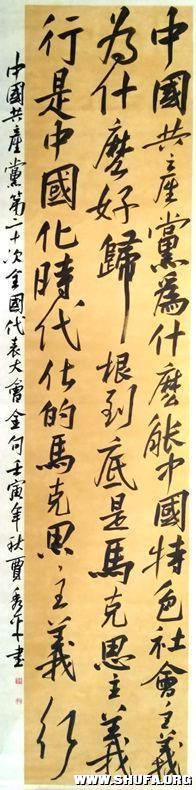 中國共產黨為什麼能中國特色社會主義
為什麼好歸根到底是馬克思主義
行是中國化時代化的馬克思主義行
中國共產黨第二十次全國代表大會金句壬寅年秋賈秀軍書
WWW.SHUFA.ORG